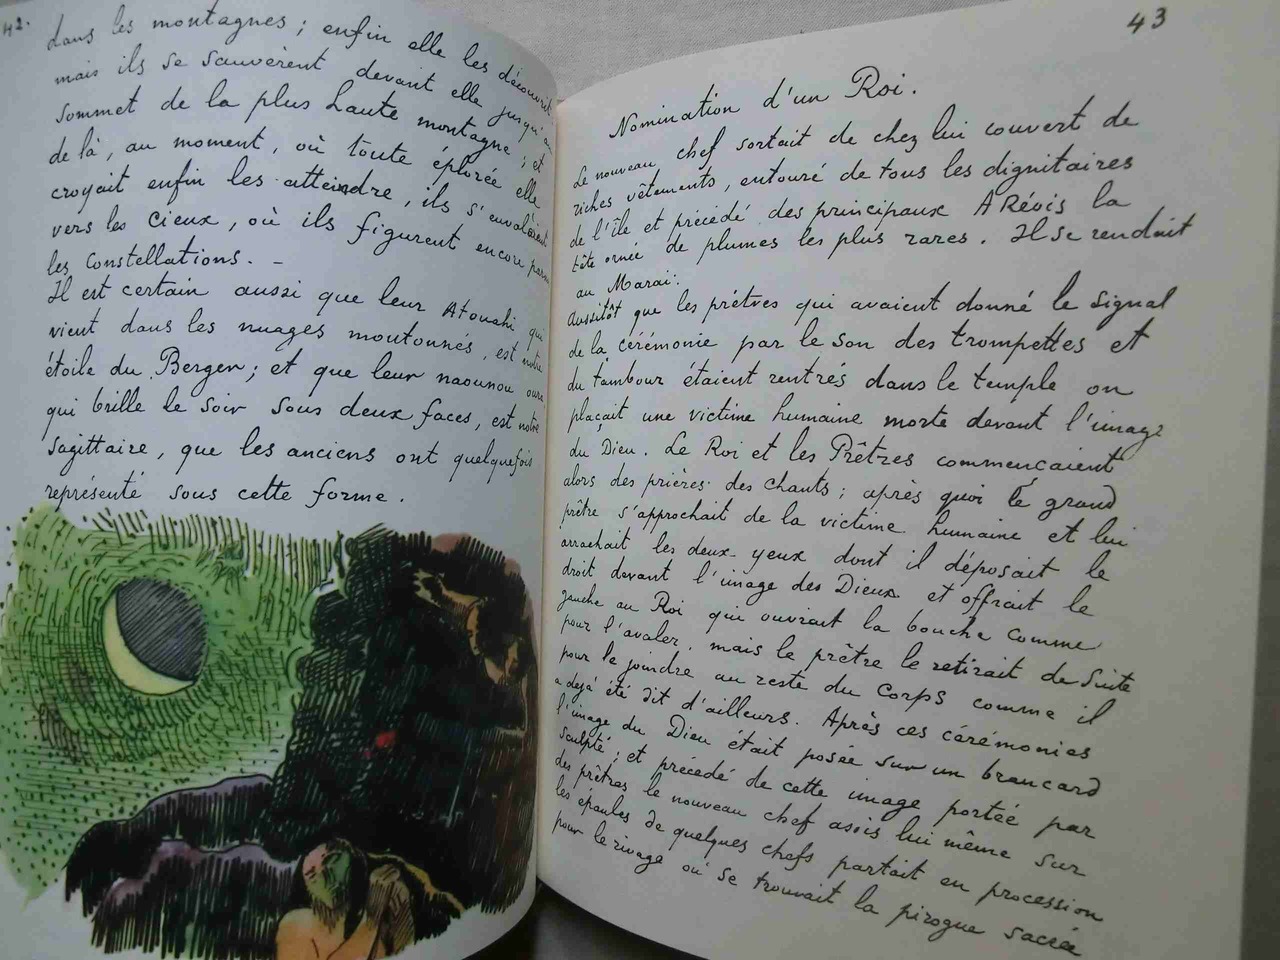 42.
dans les montagnes ; enfin elle les découvrit
mais ils se sauvèrent devant elle jusqu'au
sommet de la plus haute montagne ; et
de là, au moment, où toute éplorée elle
croyait enfin les atteindre, ils s'envolèrent
vers les cieux, où ils figurent encore parmi
les constellations. -
Il est certain aussi que leur Atouahi qui
vient dans les nuages moutonnés, est notre
étoile du Berger ; et que leur naounou oura
qui brille le soir sous deux faces, est notre
Sagittaire, que les anciens ont quelquefois
représenté sous cette forme.
43
Nomination d'un Roi.
Le nouveau chef sortait de chez lui couvert de
riches vêtements, entouré de tous les dignitaires
de l'île et précédé des principaux ARévis la
tête ornée de plumes les plus rares. Il se rendait
au Maraï.
Aussitôt que les prêtres qui avaient donné le signal
de la cérémonie par le son des trompettes et
du tambour étaient rentrés dans le temple on
plaçait une victime humaine morte devant l'image
du Dieu. Le Roi et les Prêtres commençaient
alors des prières des chants ; après quoi le grand
prêtre s'approchait de la victime humaine et lui
arrachait les deux yeux dont il déposait le
droit devant l'image des Dieux et offrait le
gauche au Roi qui ouvrait la bouche comme
pour l'avaler, mais le prêtre le retirait de suite
pour le joindre au reste du corps comme il
a dejà été dit d'ailleurs. Après ces cérémonies
l'image du Dieu était posée sur un brancard
sculpté ; et précédé de cette image portée par
des prêtres le nouveau chef assis lui même sur
les épaules de quelques chefs partait en procession
pour le rivage où se trouvait la pirogue sacrée